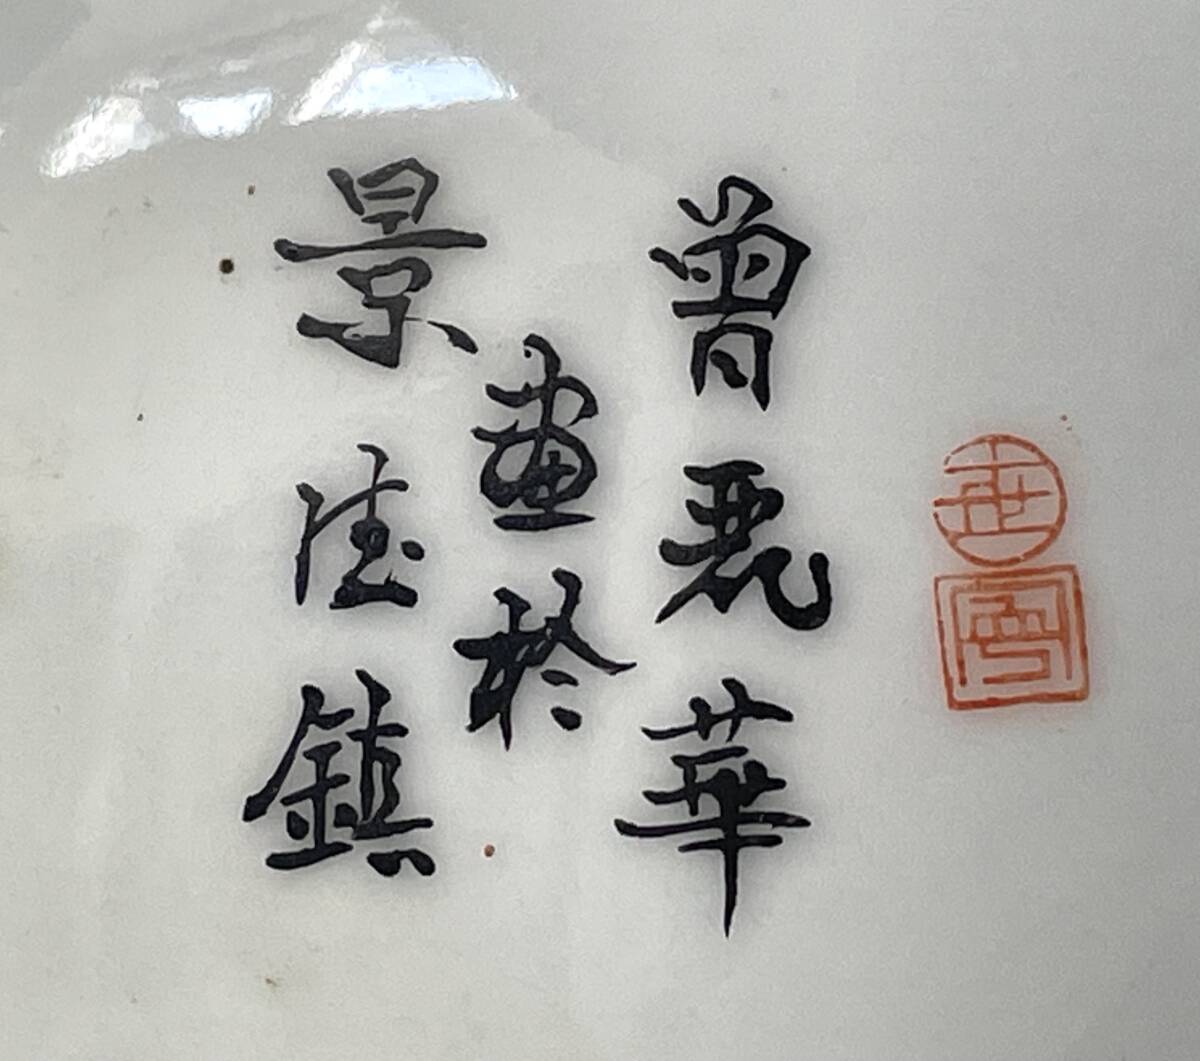 曾麗華
畫於
景德鎮